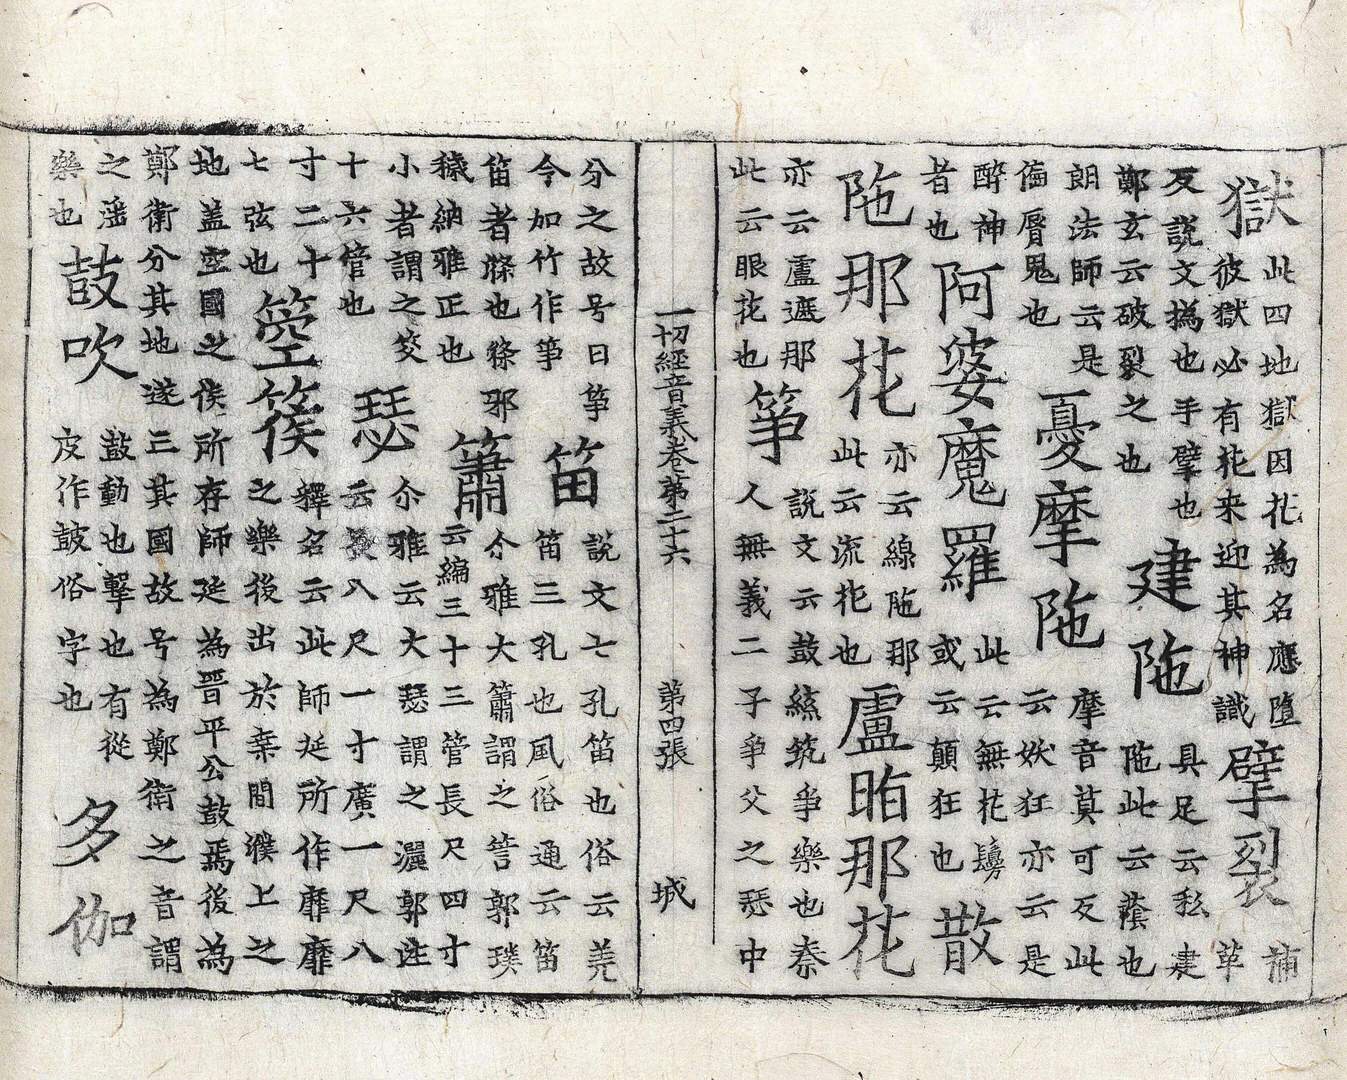 獄
此四地獄因花為名應墮
彼獄必有花来迎其神識
擘裂
補
革
反說文撝也手擘也
鄭玄云破裂之也
建陁
具足云私建
陁此云䕃也
朗法師云是
脣鬼也
憂摩陁
摩音莫可反此
云妖狂亦云是
醉神
者也
阿婆魔羅
此云無花鬘
或云顛狂也
散
陁那花
亦云線陁那
此云流花也
盧䀫那花
亦云盧遮那
此云眼花也
箏
說文云鼓絲筑爭樂也秦
人無義二子爭父之瑟中
一切經音義卷第二十六 第四張 城
分之故号曰箏
今加竹作箏
笛
說文七孔笛也俗云羌
笛三孔也風俗通云笛
笛者滌也滌邪
穢納雅正也
簫
尒雅大簫謂之䇾郭璞
云編三十三管長尺四寸
小者謂之筊
十六管也
瑟
尒雅云大瑟謂之灑郭注
云長八尺一寸廣一尺八
寸二十
七弦也
箜篌
釋名云此師延所作靡靡
之樂後出於桒間濮上之
地盖空國之侯所存師延為晋平公鼓焉後為
鄭衛分其地遂三其國故号為鄭衛之音謂
之滛
樂也
鼓吹
鼓動也擊也有從
皮作皷俗字也
多伽